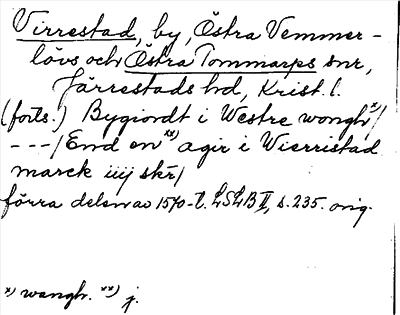 Virrestad, by, Östra Vemmer-
lövs och Östra Tommarps snr,
Järrestads hd, Krist. l.
(forts.) Bygiordt i Westre wongh x)/
---/End en xx) agir i Wierristad
marck iiij skr/
förra delen av 1570-t. LSLB II, s. 235. orig.
x) wangh. xx) j.